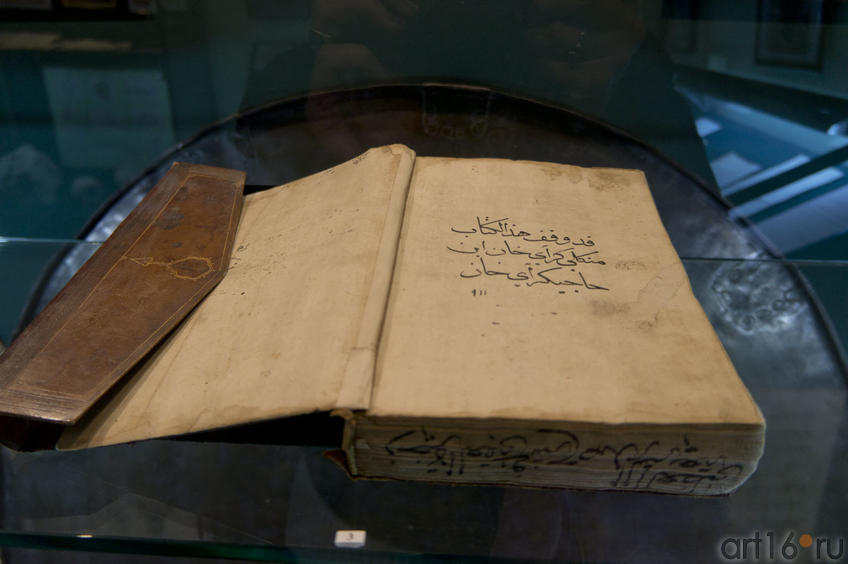 قد وقف هذا الكتاب
منكلى كراي خان ابن
حاجيكراي خان
٩١١
3
art16.ru